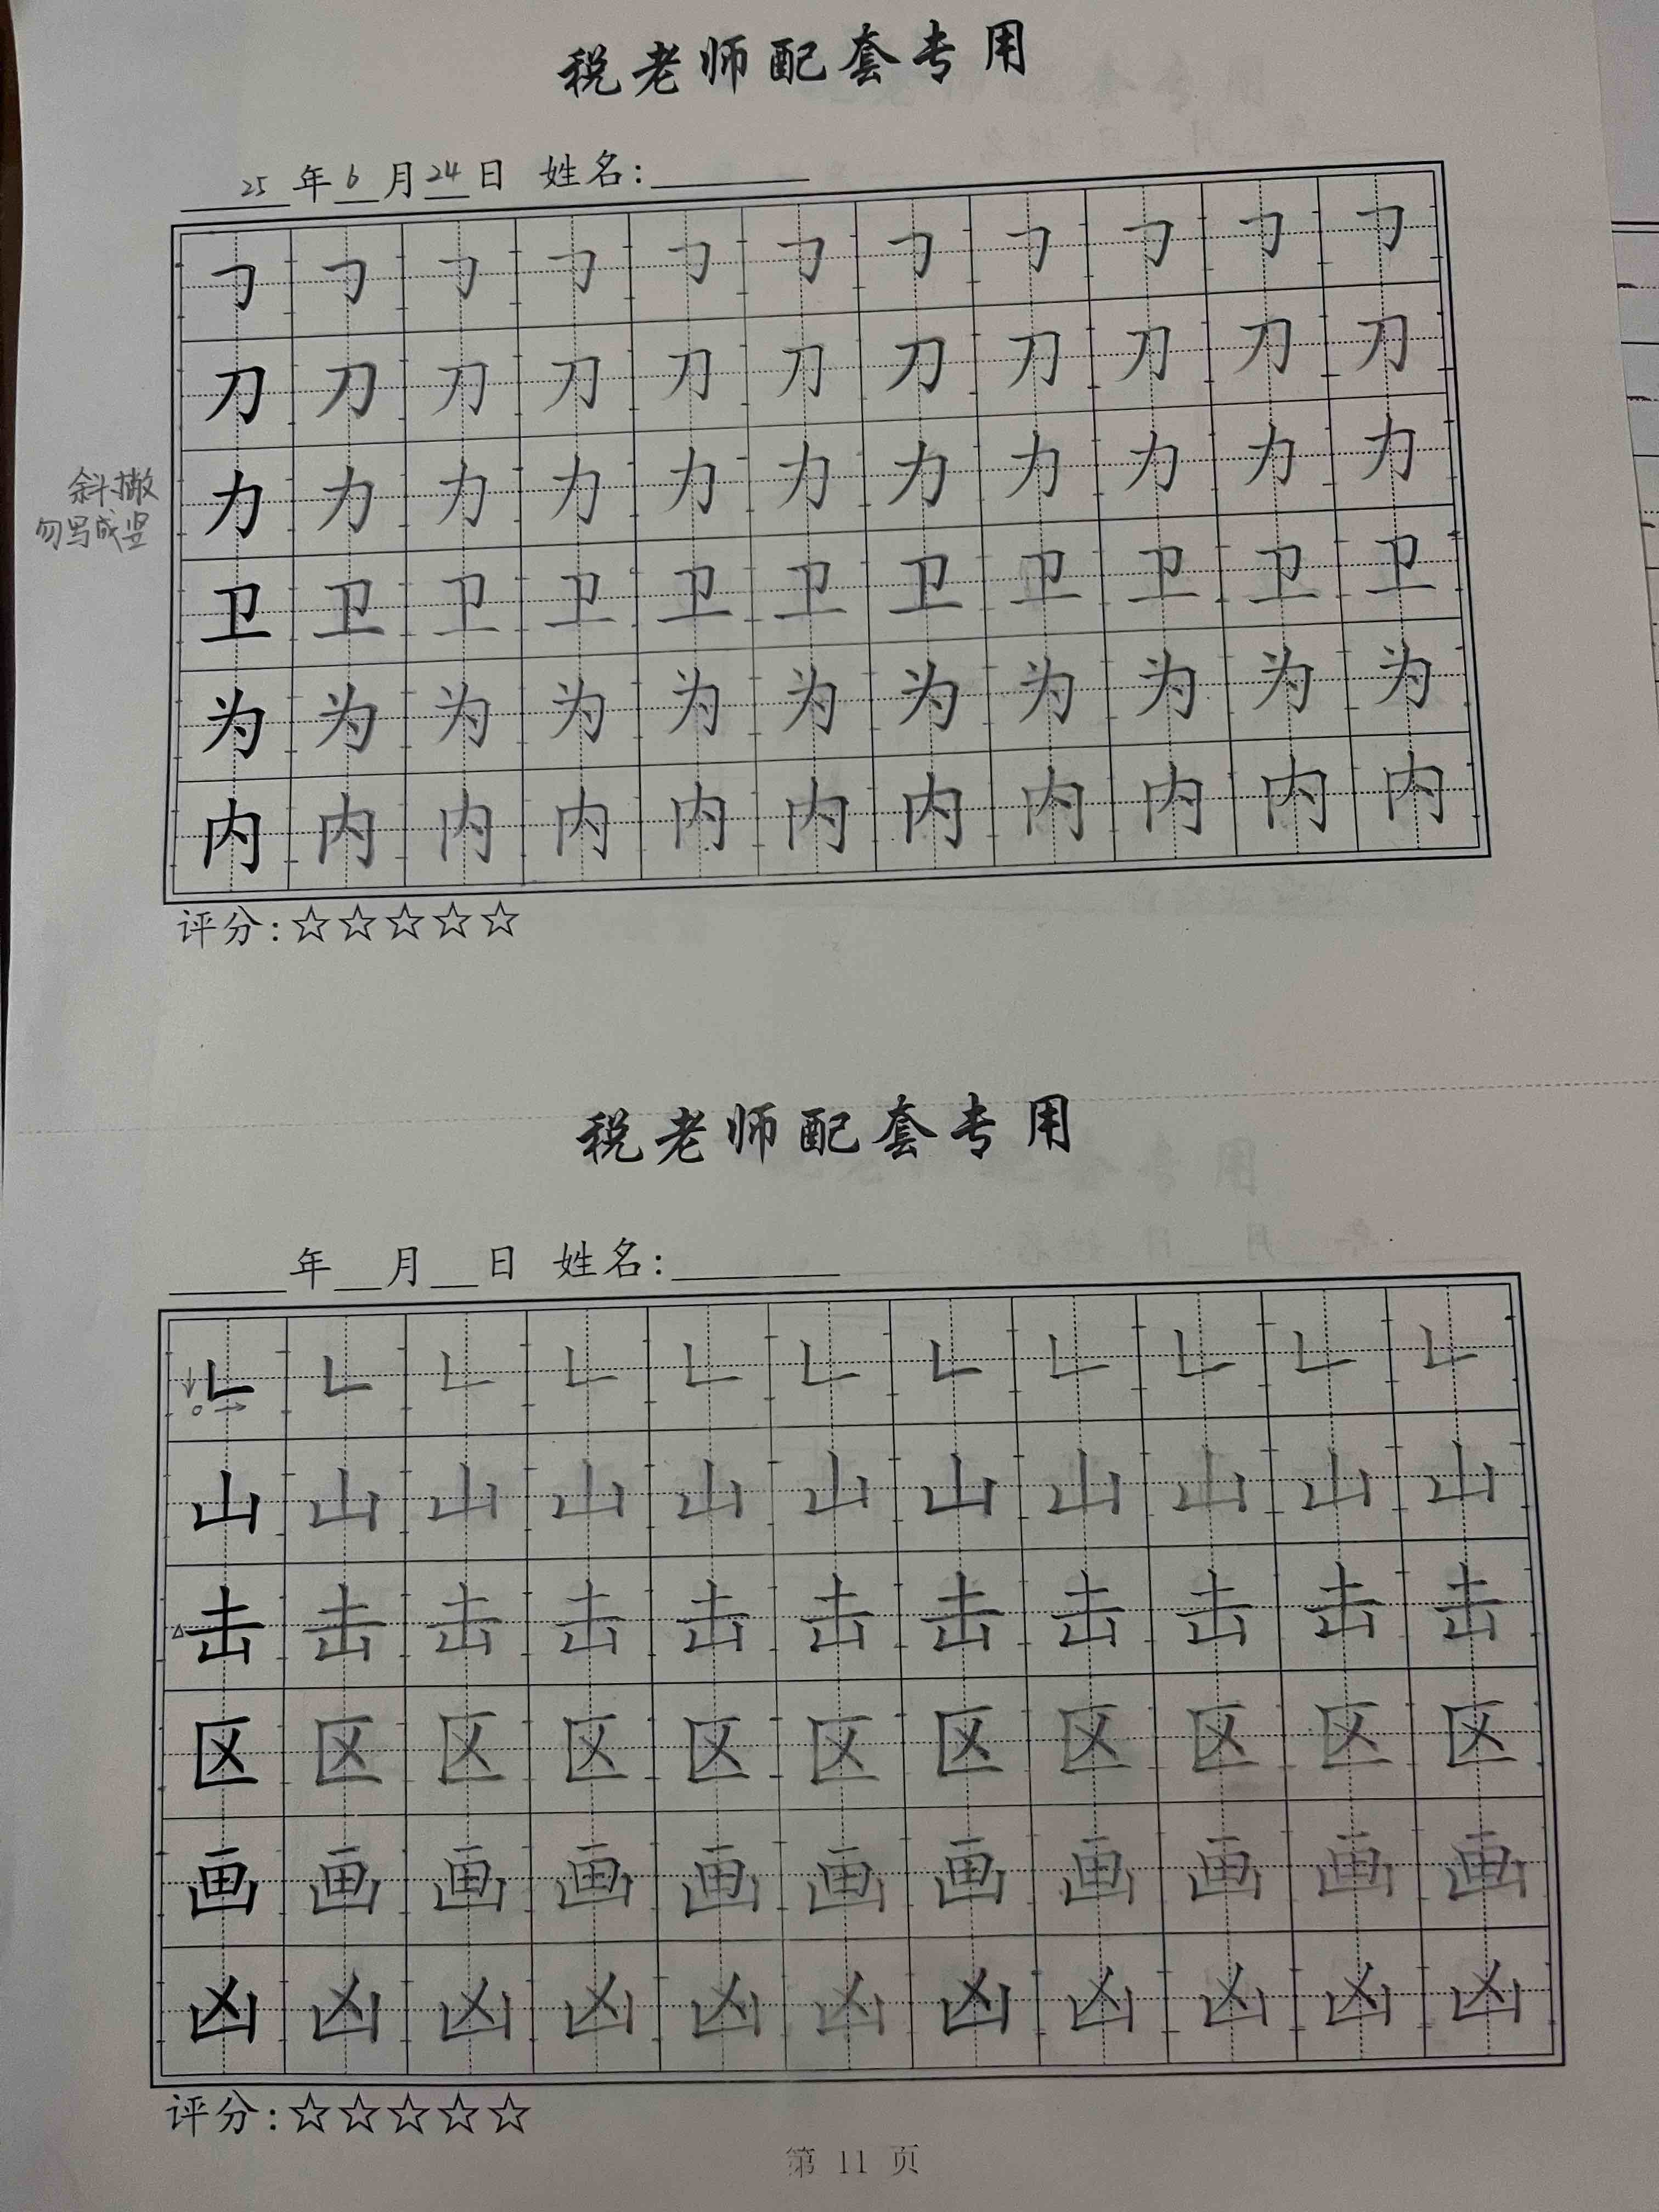 税老师配套专用
25年6月24日 姓名:
𠃌 𠃌 𠃌 𠃌 𠃌 𠃌 𠃌 𠃌 𠃌 𠃌 𠃌
刀 刀 刀 刀 刀 刀 刀 刀 刀 刀 刀
斜撇
勿写成竖
力 力 力 力 力 力 力 力 力 力 力
卫 卫 卫 卫 卫 卫 卫 卫 卫 卫 卫
为 为 为 为 为 为 为 为 为 为 为
内 内 内 内 内 内 内 内 内 内 内
评分:☆☆☆☆☆
税老师配套专用
年 月 日 姓名:
𠃊 𠃊 𠃊 𠃊 𠃊 𠃊 𠃊 𠃊 𠃊 𠃊 𠃊
山 山 山 山 山 山 山 山 山 山 山
击 击 击 击 击 击 击 击 击 击 击
区 区 区 区 区 区 区 区 区 区 区
画 画 画 画 画 画 画 画 画 画 画
凶 凶 凶 凶 凶 凶 凶 凶 凶 凶 凶
评分:☆☆☆☆☆
第 11 页